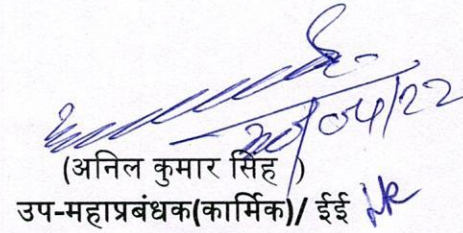 20/04/22
(अनिल कुमार सिंह )
उप-महाप्रबंधक(कार्मिक)/ ईई